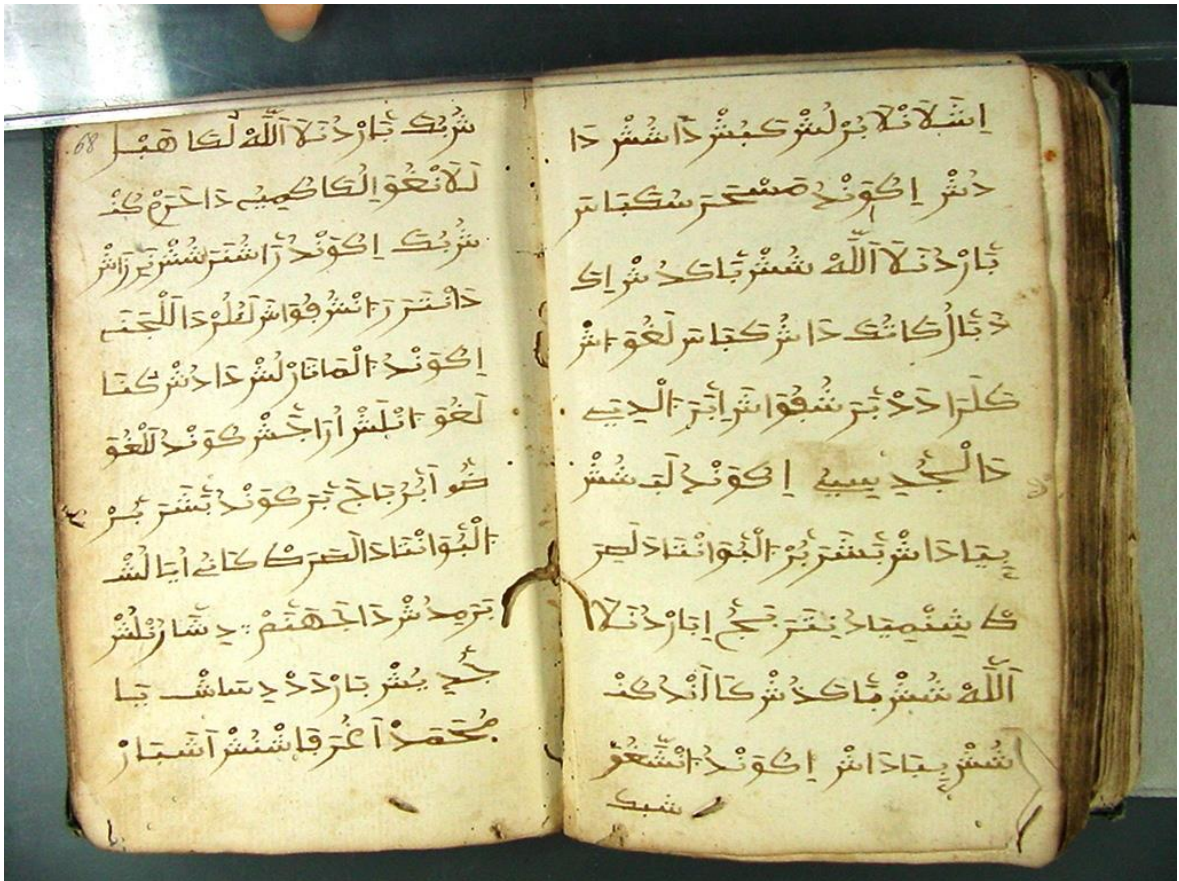 اِشَلاَنْلاَ بُرْ لُشْ كَبُشْ دَا شُشْ دَا
دُشْ اِكُوَنْدُ
بَّارْدُنَلاَ اَللَّهْ شُشْ بَّاكَدُشْ اِكَ
دَبَّالُكَاتُكَ دَا شُ كَبَاسَ لَغُوَ اشْ
كَلَرَا دَدْ بَّرَ شُفُوَاشَ اِبَّرَ الْدِيَ
دَالْجُّدِيسِيُ اِكُوَنْدُ لَبَ شُشْ
بِّيَادَاشْ بَّشَرَ بُّرْ الْبُّوَانْتَا دَلَصِرَ
كْ شِنْمِيَادُ نِنْتَرَبَجُ اِبَارْدُنَلاَ
اَللَّهْ شُشْ بَّاكَدُشْ كَا اَنْدُ كُنْ
شُشْ بِّيَادَاشْ اِكُوَنْدُ انْشَّغُوَ
شبك
68
شُبُكَ بَّارْدُنَلاَ اَللَّهْ لُكَا هَبْلَ
لَلاَنْغُوَ اِلُكَا كُمِيُ دَا حَرَمْ كُنْ
شُبُكَ اِكُوَنْدُ رَّاشُتَرَ شُشْ نَرِزَاشْ
دَانْتَرَرَ انْشُ فُوَاشَ لَعُلُرْ دَا اَلْجَنَه
اِكُوَنْدُ الْمَاتَارْ لُشْ دَادُشْ كُنَا
لَغُوَ انْلَشْ اُرَاجَّشْ كُوَنْدُ لَلْغُوَ
اَبُرُبَاجَ بَّرَ كُوَنْدُ بَّشَرَ بُّرْ
الْبُّوَانْتَا دَالصِرَكْ كَانُ اُيَا لُشْ
بَرَمِدُشْ دَا جَهَنَّمْ ؞ دِشَّارُنْلُشْ
جُّدِيُشْ بَارْدَدْ دِسَاشْ يَا
مُحَمَدْ اَغُرَ فَاشْنُشْ اَشَبَارْ